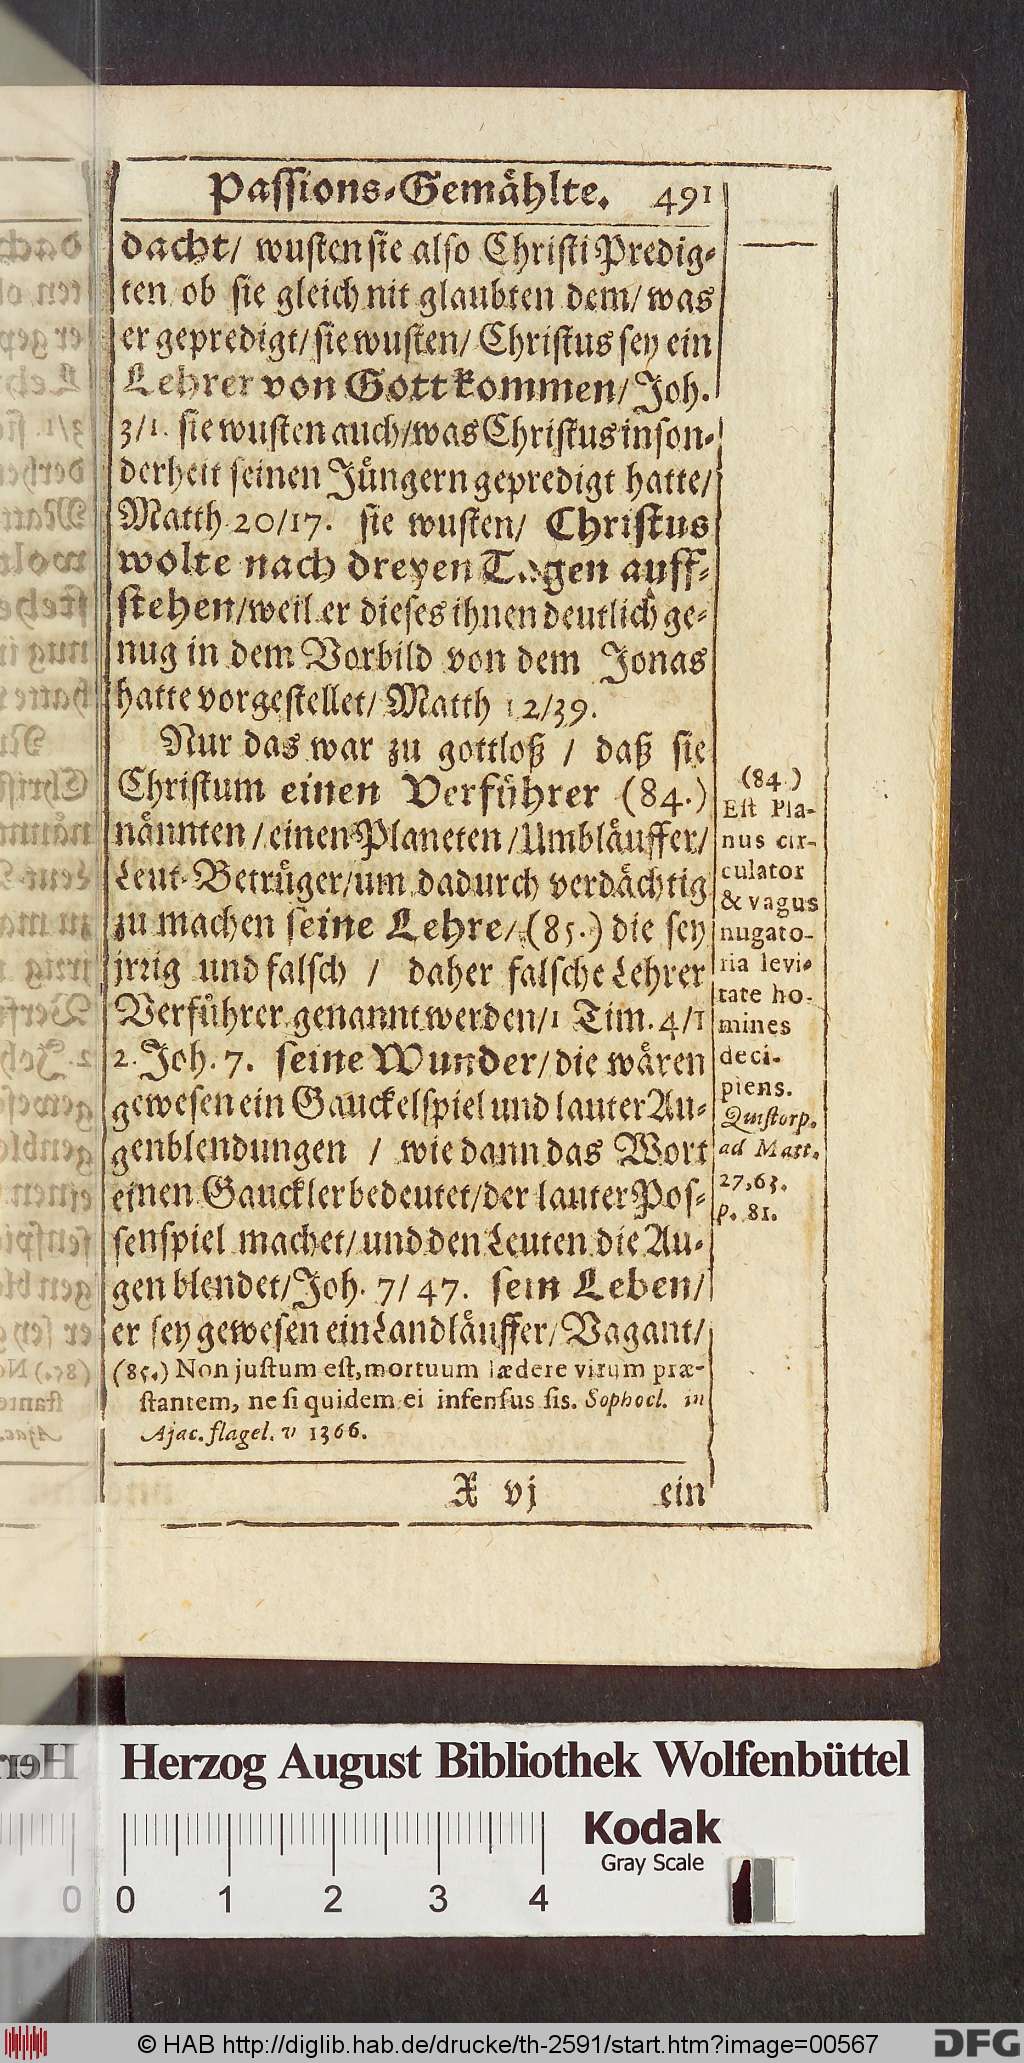 Passions-Gemählte. 491
dacht/ wusten sie also Christi Predig-
ten ob sie gleich nit glaubten dem/ was
er gepredigt/ sie wusten/ Christus sey ein
Lehrer von Gott kommen/ Joh.
3/1. sie wusten auch/ was Christus inson-
derheit seinen Jüngern gepredigt hatte/
Matth. 20/17. sie wusten/ Christus
wolte nach dreyen Tagen auff-
stehen/ weil er dieses ihnen deutlich ge-
nug in dem Vorbild von dem Jonas
hatte vorgestellet/ Matth 12/39.
Nur das war zu gottloß / daß sie
Christum einen Verführer (84.)
nännten / einen Planeten / Umbläuffer/
Leut-Betrüger/ um dadurch verdächtig
zu machen seine Lehre/ (85.) die sey
jrrig und falsch / daher falsche Lehrer
Verführer genannt werden/ 1 Tim. 4/1
2. Joh. 7. seine Wunder/ die wären
gewesen ein Gauckelspiel und lauter Au-
genblendungen / wie dann das Wort
einen Gauckler bedeutet/ der lauter Pos-
senspiel machet/ und den Leuten die Au-
gen blendet/ Joh. 7/47. sein Leben/
er sey gewesen ein Landläuffer/ Vagant/
(84.)
Est Pla-
nus cir-
culator
& vagus
nugato-
ria levi-
tate ho-
mines
deci-
piens.
Quistorp.
ad Matt.
27,63.
p. 81.
(85.) Non justum est, mortuum lædere virum præ-
stantem, ne si quidem ei infensus sis. Sophocl. in
Ajac. flagel. v 1366.
X vj ein
Herzog August Bibliothek Wolfenbüttel
Kodak
Gray Scale
0 0 1 2 3 4
© HAB http://diglib.hab.de/drucke/th-2591/start.htm?image=00567
DFG